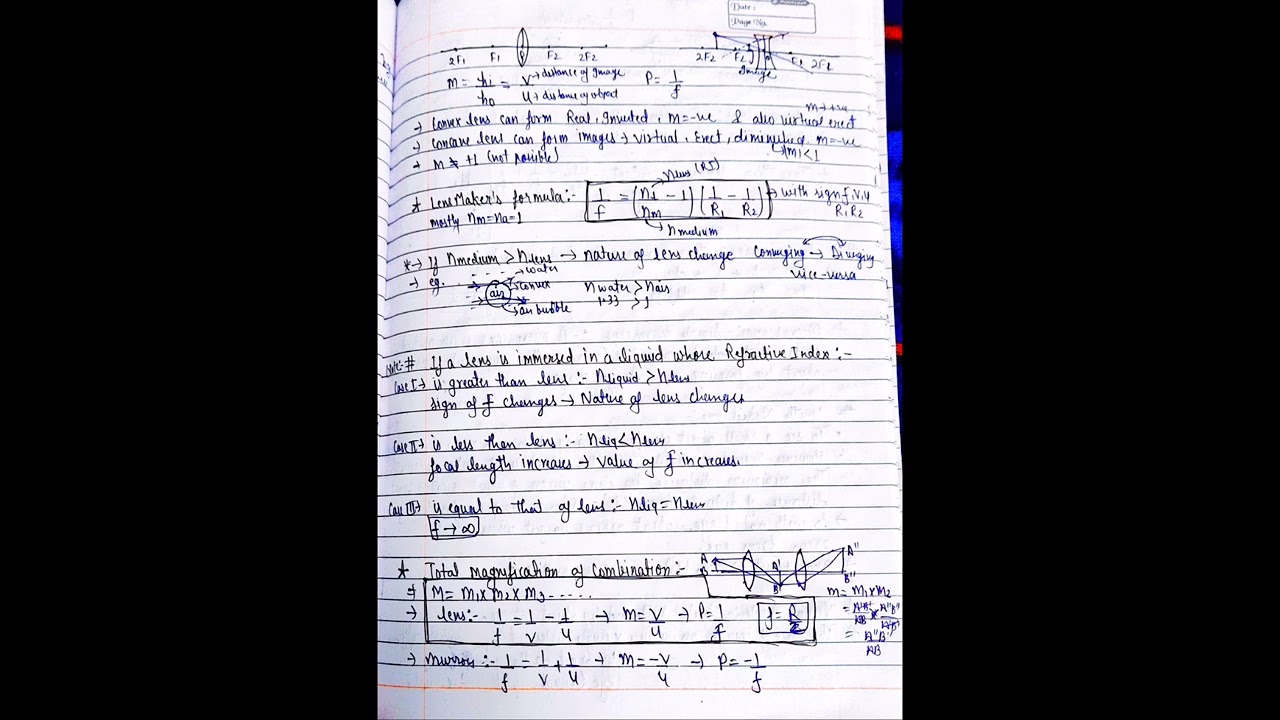 Date :
Page No.
2F1 F1 F2 2F2
2F2 F2 F1 2F1
Image
m = hi/h0 = V → distance of Image / u → distance of object P = 1/f
m → +ve
→ Convex lens can form Real, Inverted, m = -ve & also virtual erect
→ Concave lens can form images → virtual, Erect, diminished, m = -ve
|m| < 1
→ m ≠ +1 (not possible)
nlens (RI)
* Lens Maker's formula :- 1/f = (nl/nm - 1) (1/R1 - 1/R2) → with sign f, v, u
R1 R2
mostly nm = na = 1
nmedium
* → If nmedium > nlens → nature of lens change Converging → Diverging
vice-versa
→ eg. → water
air → convex nwater > nair
→ air bubble 1.33 > 1
Note:- # If a lens is immersed in a liquid whose Refractive Index :-
Case I → is greater than lens :- nliquid > nlens
sign of f changes → Nature of lens changes
Case II → is less than lens :- nliq < nlens
focal length increases → value of f increases.
Case III → is equal to that of lens :- nliq = nlens
f → ∞
* Total magnification of Combination :-
A B A' B' A'' B''
→ M = m1 x m2 x m3 ......
m = m1 x m2
= A'B'/AB x A''B''/A'B'
= A''B''/AB
→ lens :- 1/f = 1/v - 1/u → m = v/u → P = 1/f f = R/2
→ mirror :- 1/f = 1/v + 1/u → m = -v/u → P = -1/f